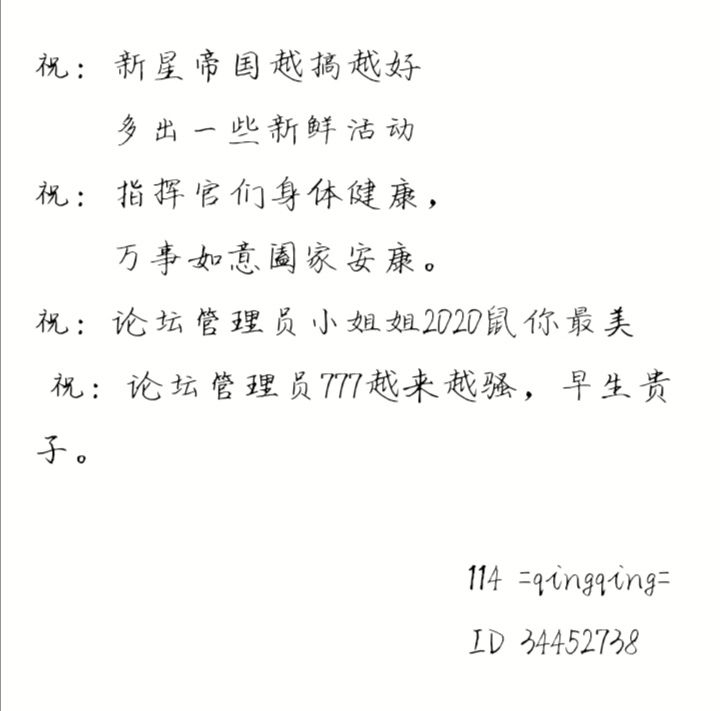 祝：新星帝国越搞越好
多出一些新鲜活动
祝：指挥官们身体健康，
万事如意阖家安康。
祝：论坛管理员小姐姐2020鼠你最美
祝：论坛管理员777越来越骚，早生贵
子。
114 =qingqing=
ID 34452738